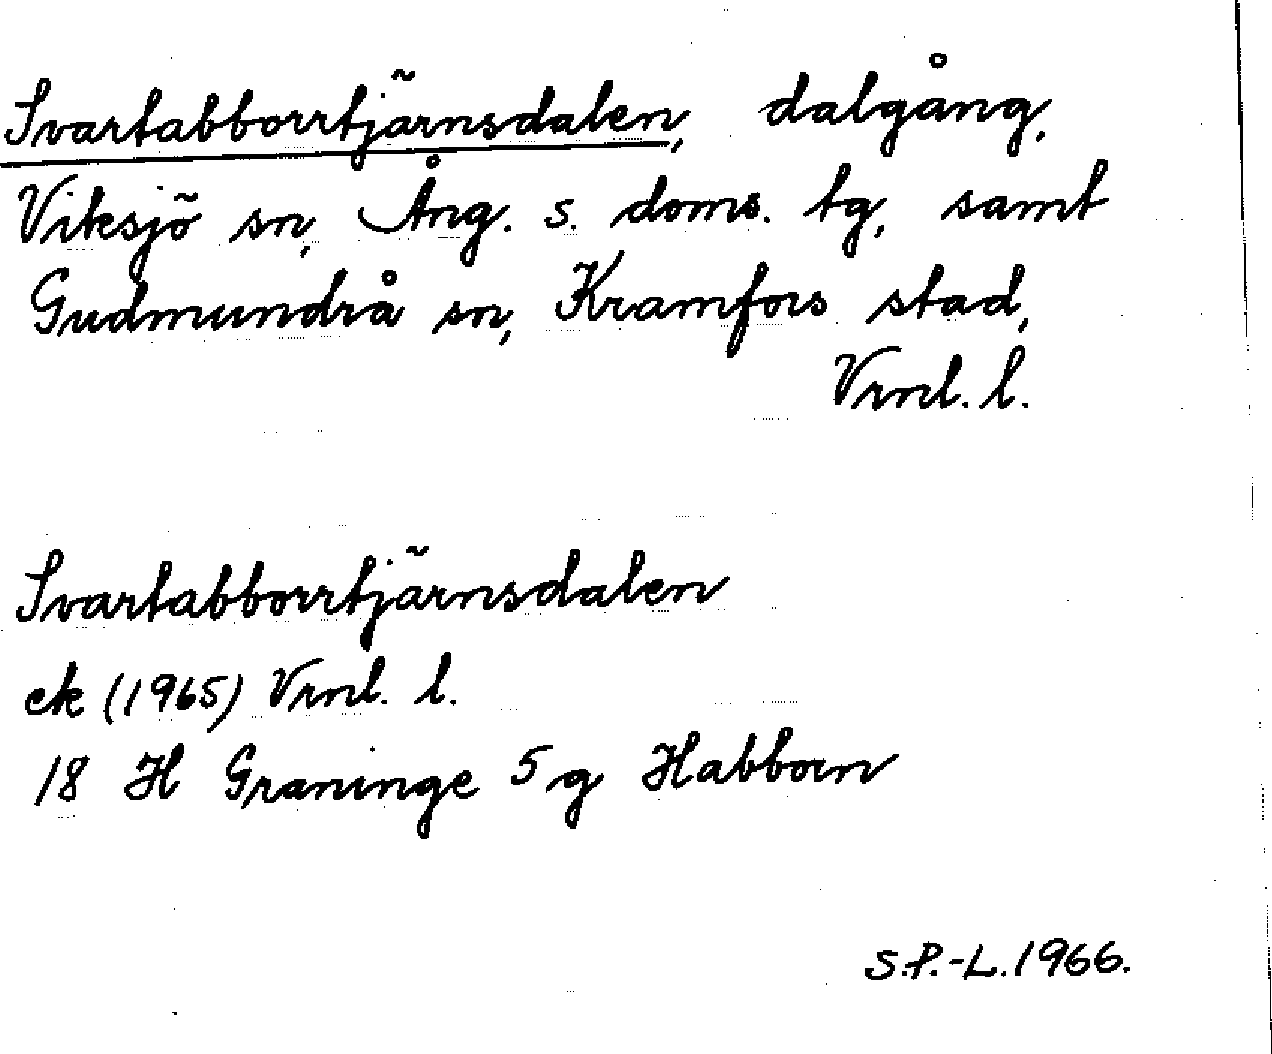 Svartabborrtjärnsdalen, dalgång,
Viksjö sn, Ång. s. doms. tg, samt
Gudmundrå sn, Kramfors stad,
Vrnl. l.
Svartabborrtjärnsdalen
ek (1965) Vrnl. l.
18 H Graninge 5 g Habborn
S.P.-L. 1966.